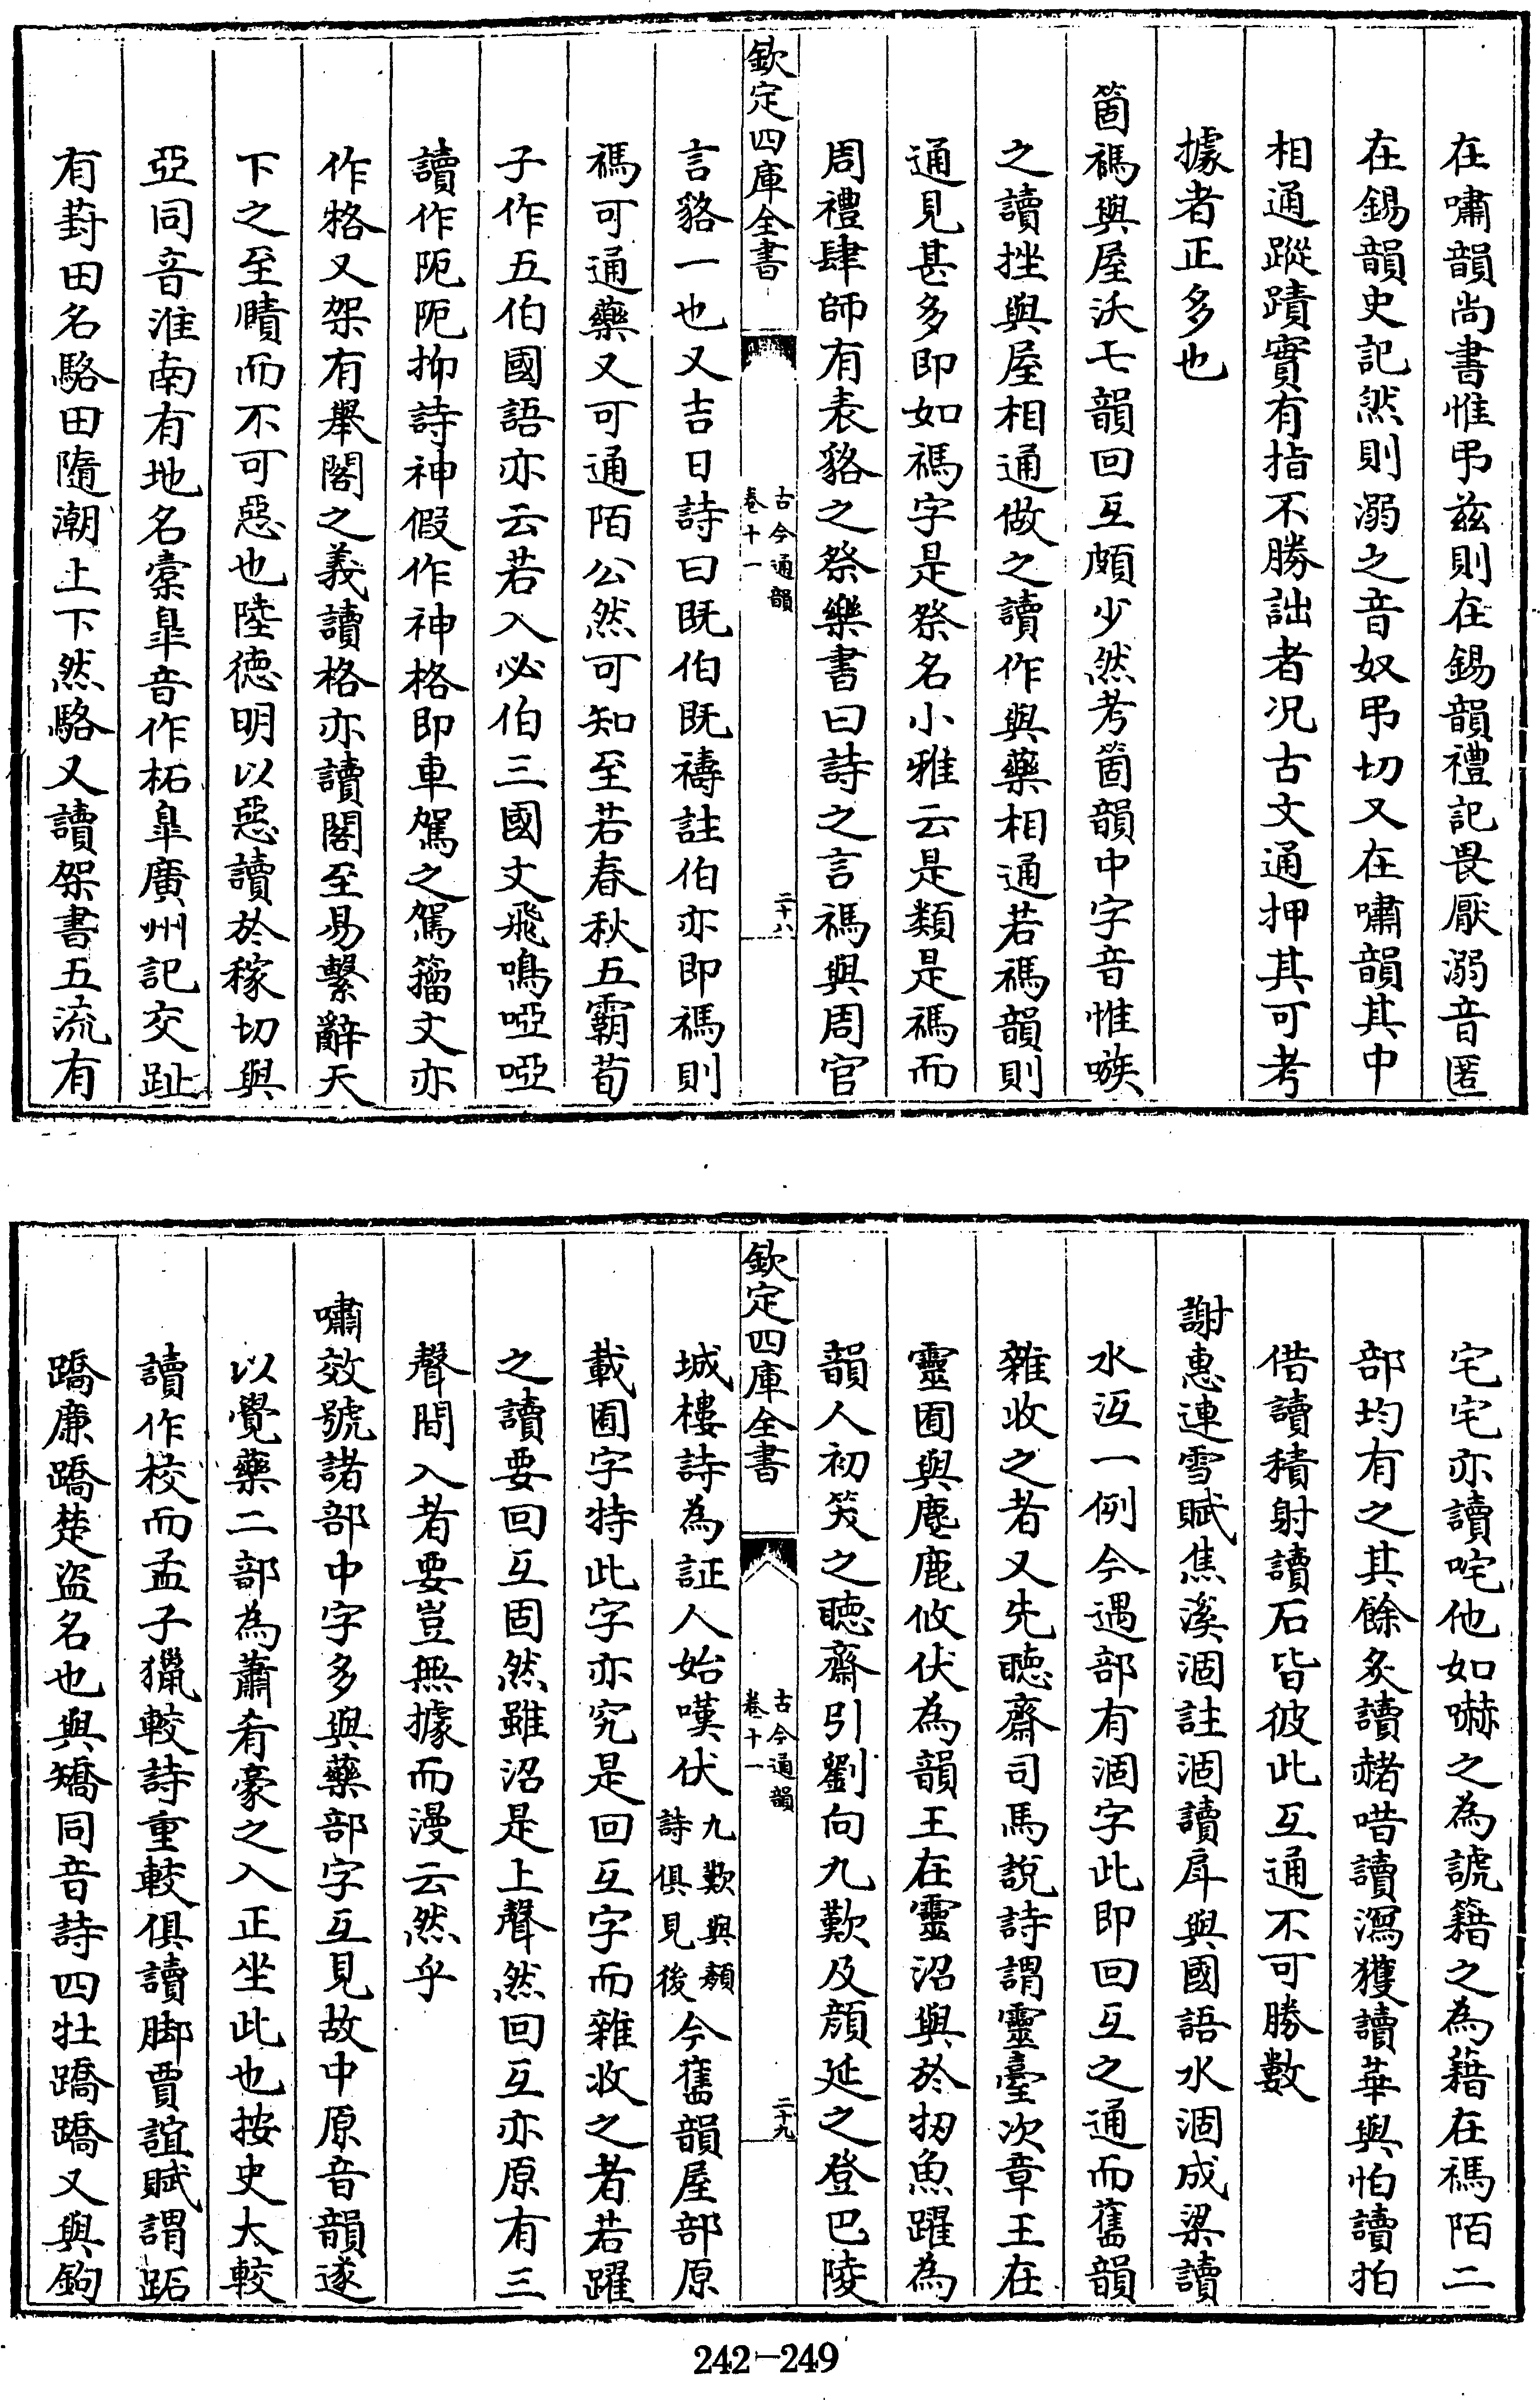 在嘯韻尚書惟弔兹則在錫韻禮記畏厭溺音匿
在錫韻史記然則溺之音奴弔切又在嘯韻其中
相通蹤蹟實有指不勝詘者况古文通押其可考
據者正多也
箇禡與屋沃七韻回互頗少然考箇韻中字音惟嗾
之讀挫與屋相通做之讀作與藥相通若禡韻則
通見甚多即如禡字是祭名小雅云是類是禡而
周禮肆師有表貉之祭樂書曰詩之言禡與周官
欽定四庫全書
古今通韻
卷十一
二十八
言貉一也又吉日詩曰既伯既禱註伯亦即禡則
禡可通藥又可通陌公然可知至若春秋五霸荀
子作五伯國語亦云若入必伯三國文飛鳴啞啞
讀作阨阨抑詩神假作神格即車駕之駕籀文亦
作㸵又架有舉閣之義讀格亦讀閣至易繫辭天
下之至賾而不可惡也陸德明以惡讀於稼切與
亞同音淮南有地名橐臯音作柘臯廣州記交趾
有葑田名駱田隨潮上下然駱又讀架書五流有
宅宅亦讀咤他如嚇之為諕籍之為藉在禡陌二
部均有之其餘炙讀赭唶讀瀉獲讀華與怕讀拍
借讀積射讀石皆彼此互通不可勝數
謝惠連雪賦焦溪涸註涸讀戽與國語水涸成梁讀
水沍一例今遇部有涸字此即回互之通而舊韻
雜收之者又先聴齋司馬說詩謂靈臺次章王在
靈囿與麀鹿攸伏為韻王在靈沼與於牣魚躍為
韻人初笑之聴齋引劉向九歎及顔延之登巴陵
欽定四庫全書
古今通韻
卷十一
二十九
城樓詩為証人始嘆伏九歎與顔詩俱見後今舊韻屋部原
載囿字特此字亦究是回互字而雜收之者若躍
之讀要回互固然雖沼是上聲然回互亦原有三
聲間入者要豈無據而漫云然乎
嘯效號諸部中字多與藥部字互見故中原音韻遂
以覺藥二部為蕭肴豪之入正坐此也按史大較
讀作校而孟子獵較詩重較俱讀脚賈誼賦謂跖
蹻廉蹻楚盗名也與矯同音詩四牡蹻蹻又與鉤
242-249